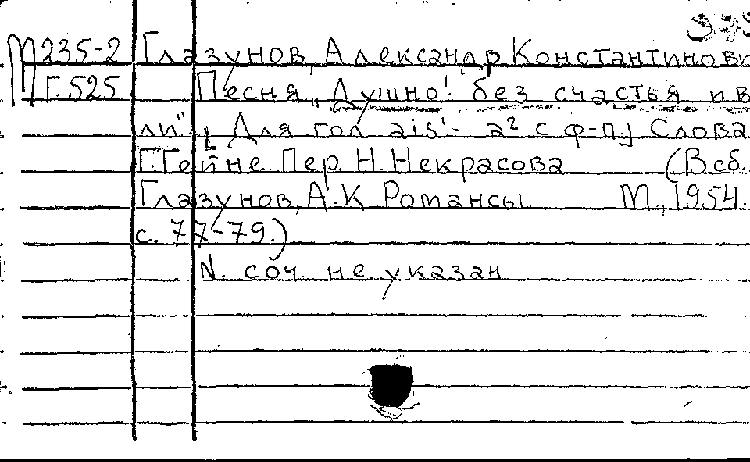 М235-2 Глазунов, Александр Константинови
Г.525 Песня „Душно! без счастья и в
ли" [Для гол ais¹- a² с ф-п.] Слова
Г.Гейне. Пер. Н. Некрасова (В сб.
Глазунов, А.К Романсы М., 1954.
с. 77-79.)
N. соч не указан